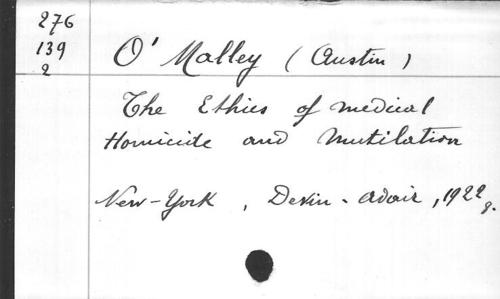 276
139
2
O'Malley (Austin)
The Ethics of medical
Homicide and Mutilation
New-York, Devin-Adair, 1922
8.